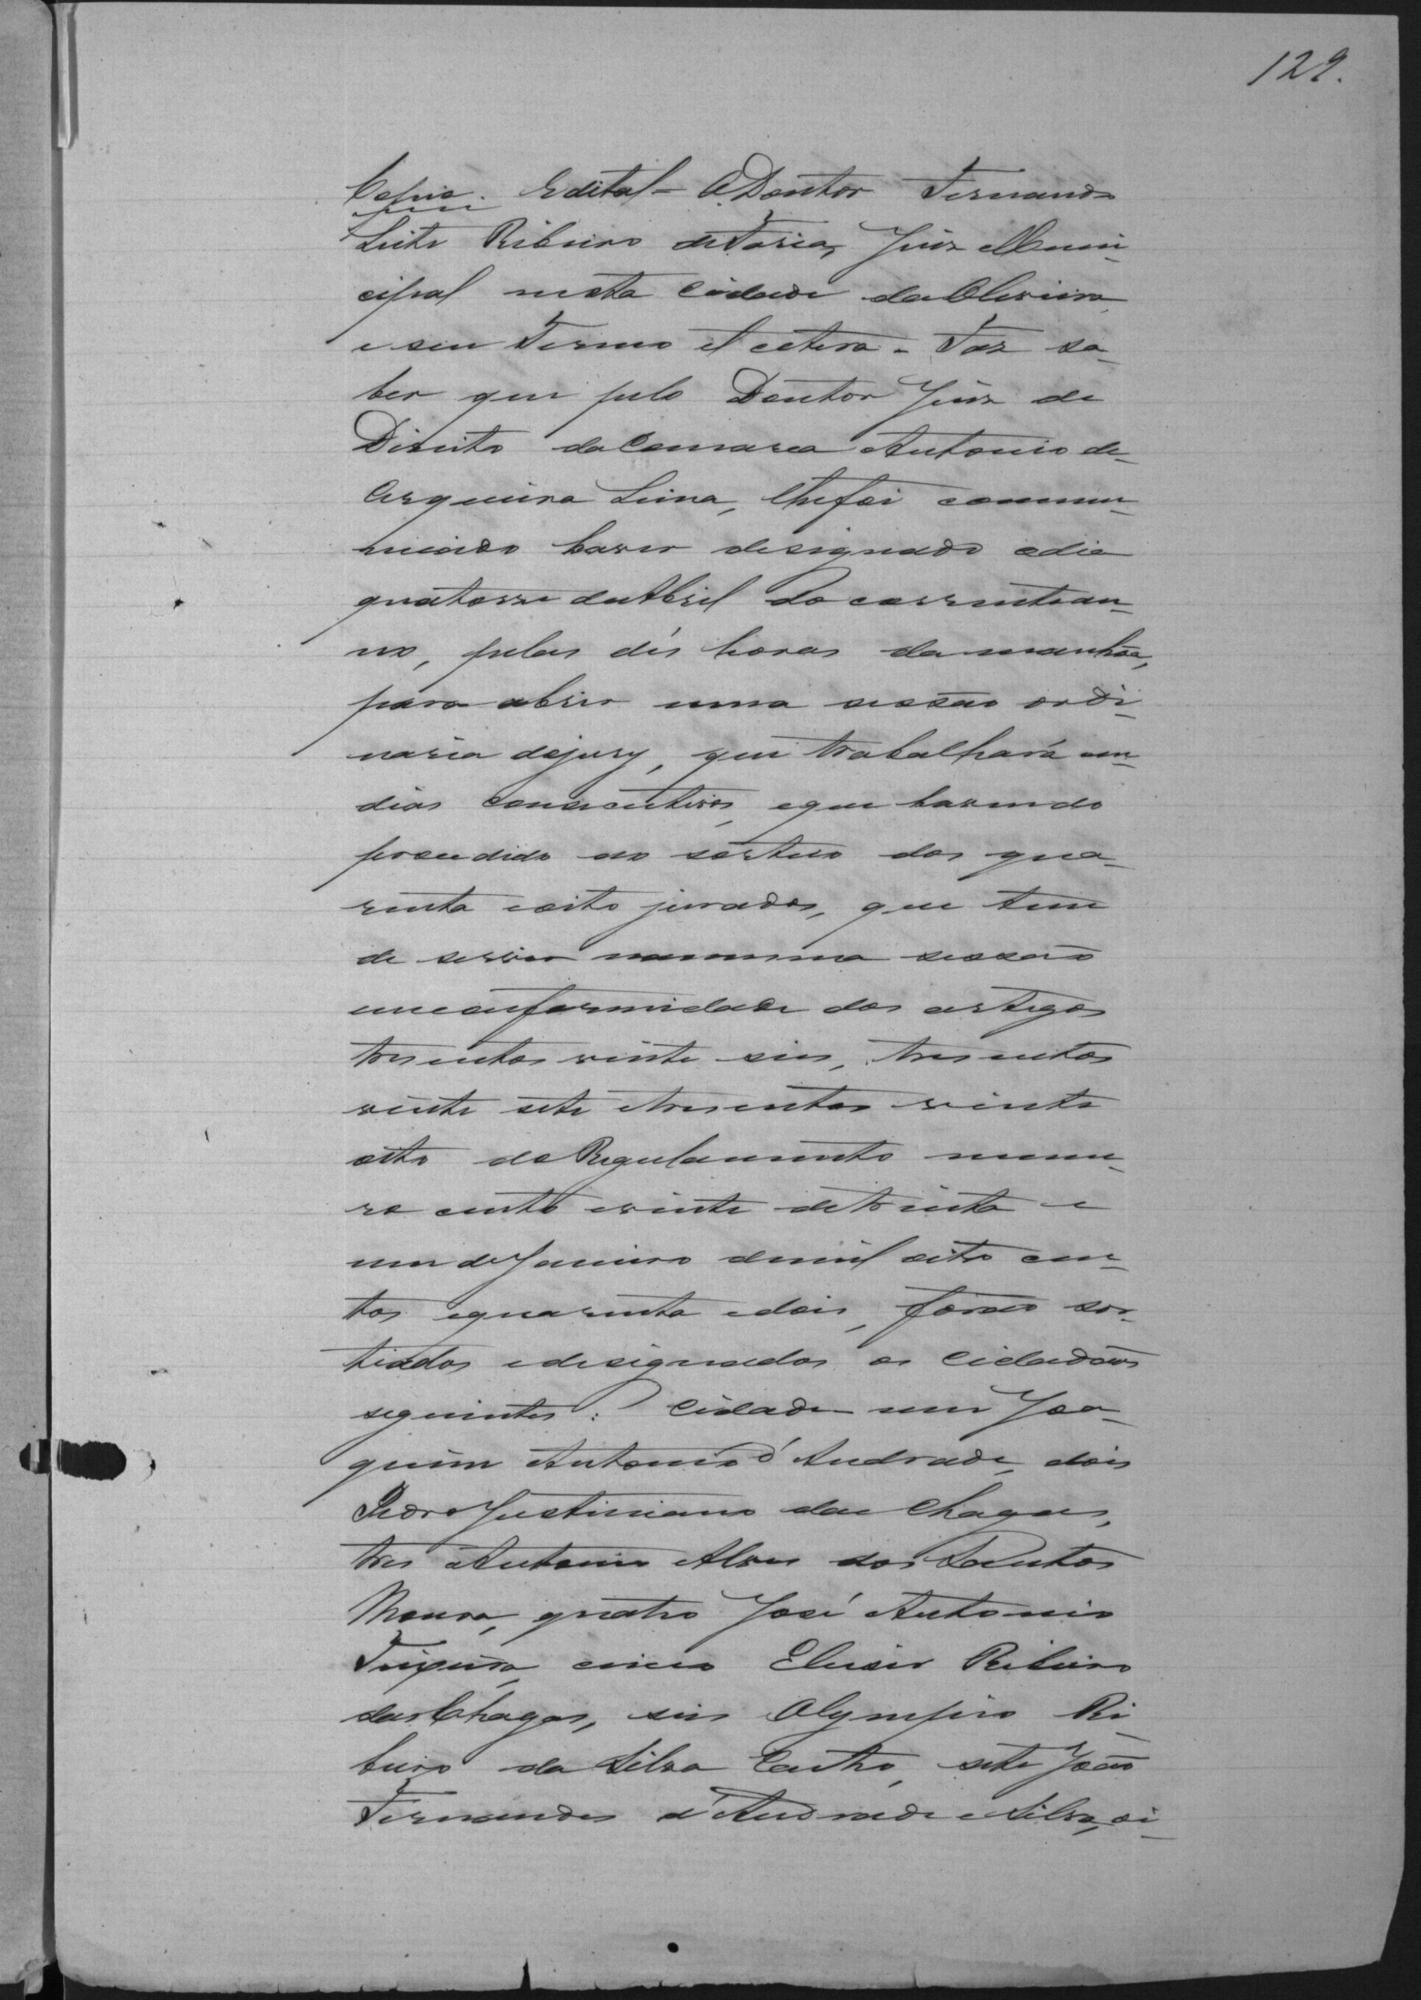 129.
Copia. Edital - O Doutor Fernando
Leite Ribeiro de Faria, Juiz Muni-
cipal nesta cidade da Oliveira,
e seu Termo et cetera - Faz sa-
ber que pelo Doutor Juiz de
Direito da Comarca Antonio de
Cerqueira Lima, lhe foi commu-
nicado haver designado o dia
quatorze de Abril do corrente an-
no, pelas dés horas da manhãa,
para abrir uma sessão ordi-
naria do jury, que trabalhará em
dias consecutivos, e que havendo
procedido ao sorteio dos qua-
renta e oito jurados, que tem
de servir na mesma sessão
em conformidade dos artigos
tresentos vinte seis, tresentos
vinte sete e tresentos vinte
oito do Regulamento nume-
ro cento e vinte de trinta e
um de Janeiro de mil oito cen-
tos e quarenta e dois, forão sor-
tiados e designados os cidadãos
seguintes: Cidade um Joa-
quim Antonio d'Andrade, dois
Pedro Justiniano das Chagas,
tres Antonio Alves dos Santos
Moura, quatro José Antonio
Teixeira, cinco Elisier Ribeiro
das Chagas, seis Olympio Ri-
beiro da Silva Castro, sete João
Fernandes d'Andrade e Silva, oi-